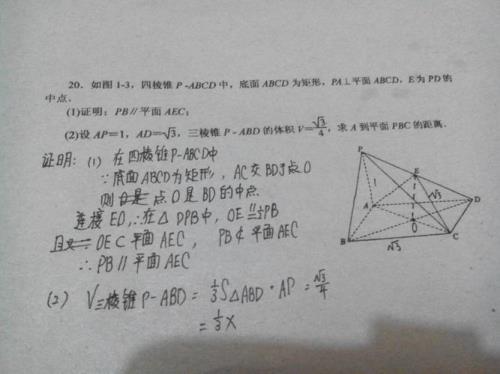 20. 如图1-3，四棱锥P-ABCD中，底面ABCD为矩形，PA⊥平面ABCD，E为PD的
中点.
(1)证明：PB∥平面AEC；
(2)设AP=1，AD=√3，三棱锥P-ABD的体积V=√3/4，求A到平面PBC的距离.
证明：(1) 在四棱锥P-ABCD中
∵底面ABCD为矩形，AC交BD于点O
则 点O是BD的中点
连接EO，∴在△DPB中，OE ∥= 1/2 PB
OE⊂平面AEC， PB⊄平面AEC
∴PB∥平面AEC
(2) V三棱锥P-ABD = 1/3 S△ABD · AP = √3/4
= 1/3 ×
P
E
1
A
D
√3
O
B
√3
C